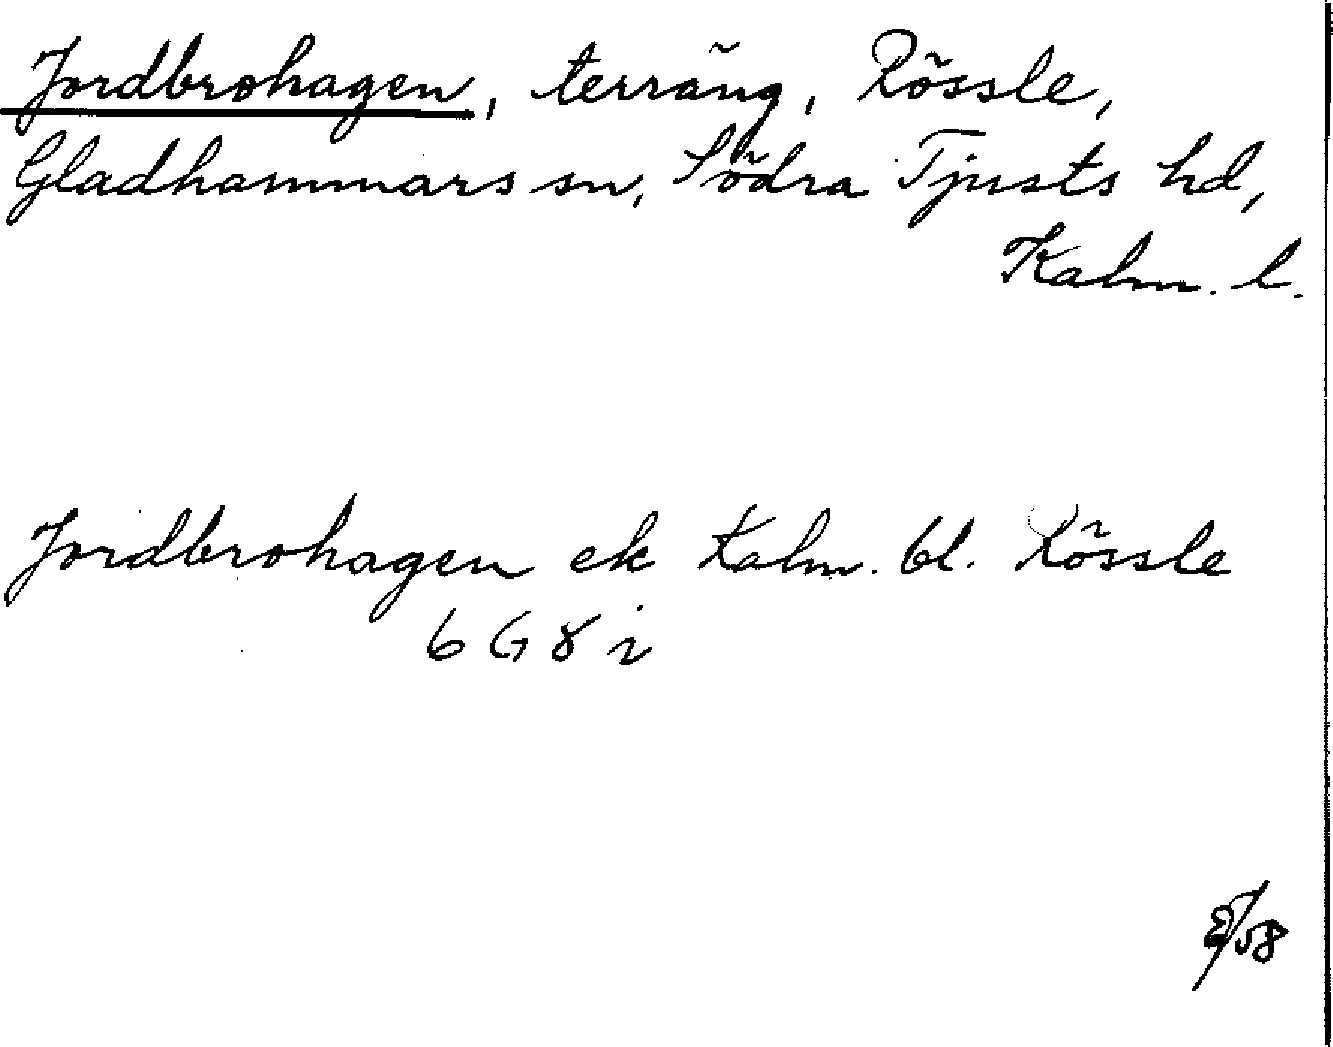 Jordbrohagen, terräng, Rössle,
Gladhammars sn, Södra Tjusts hd,
Kalm. l.
Jordbrohagen ek Kalm. bl. Rössle
6 G 8 i
/58